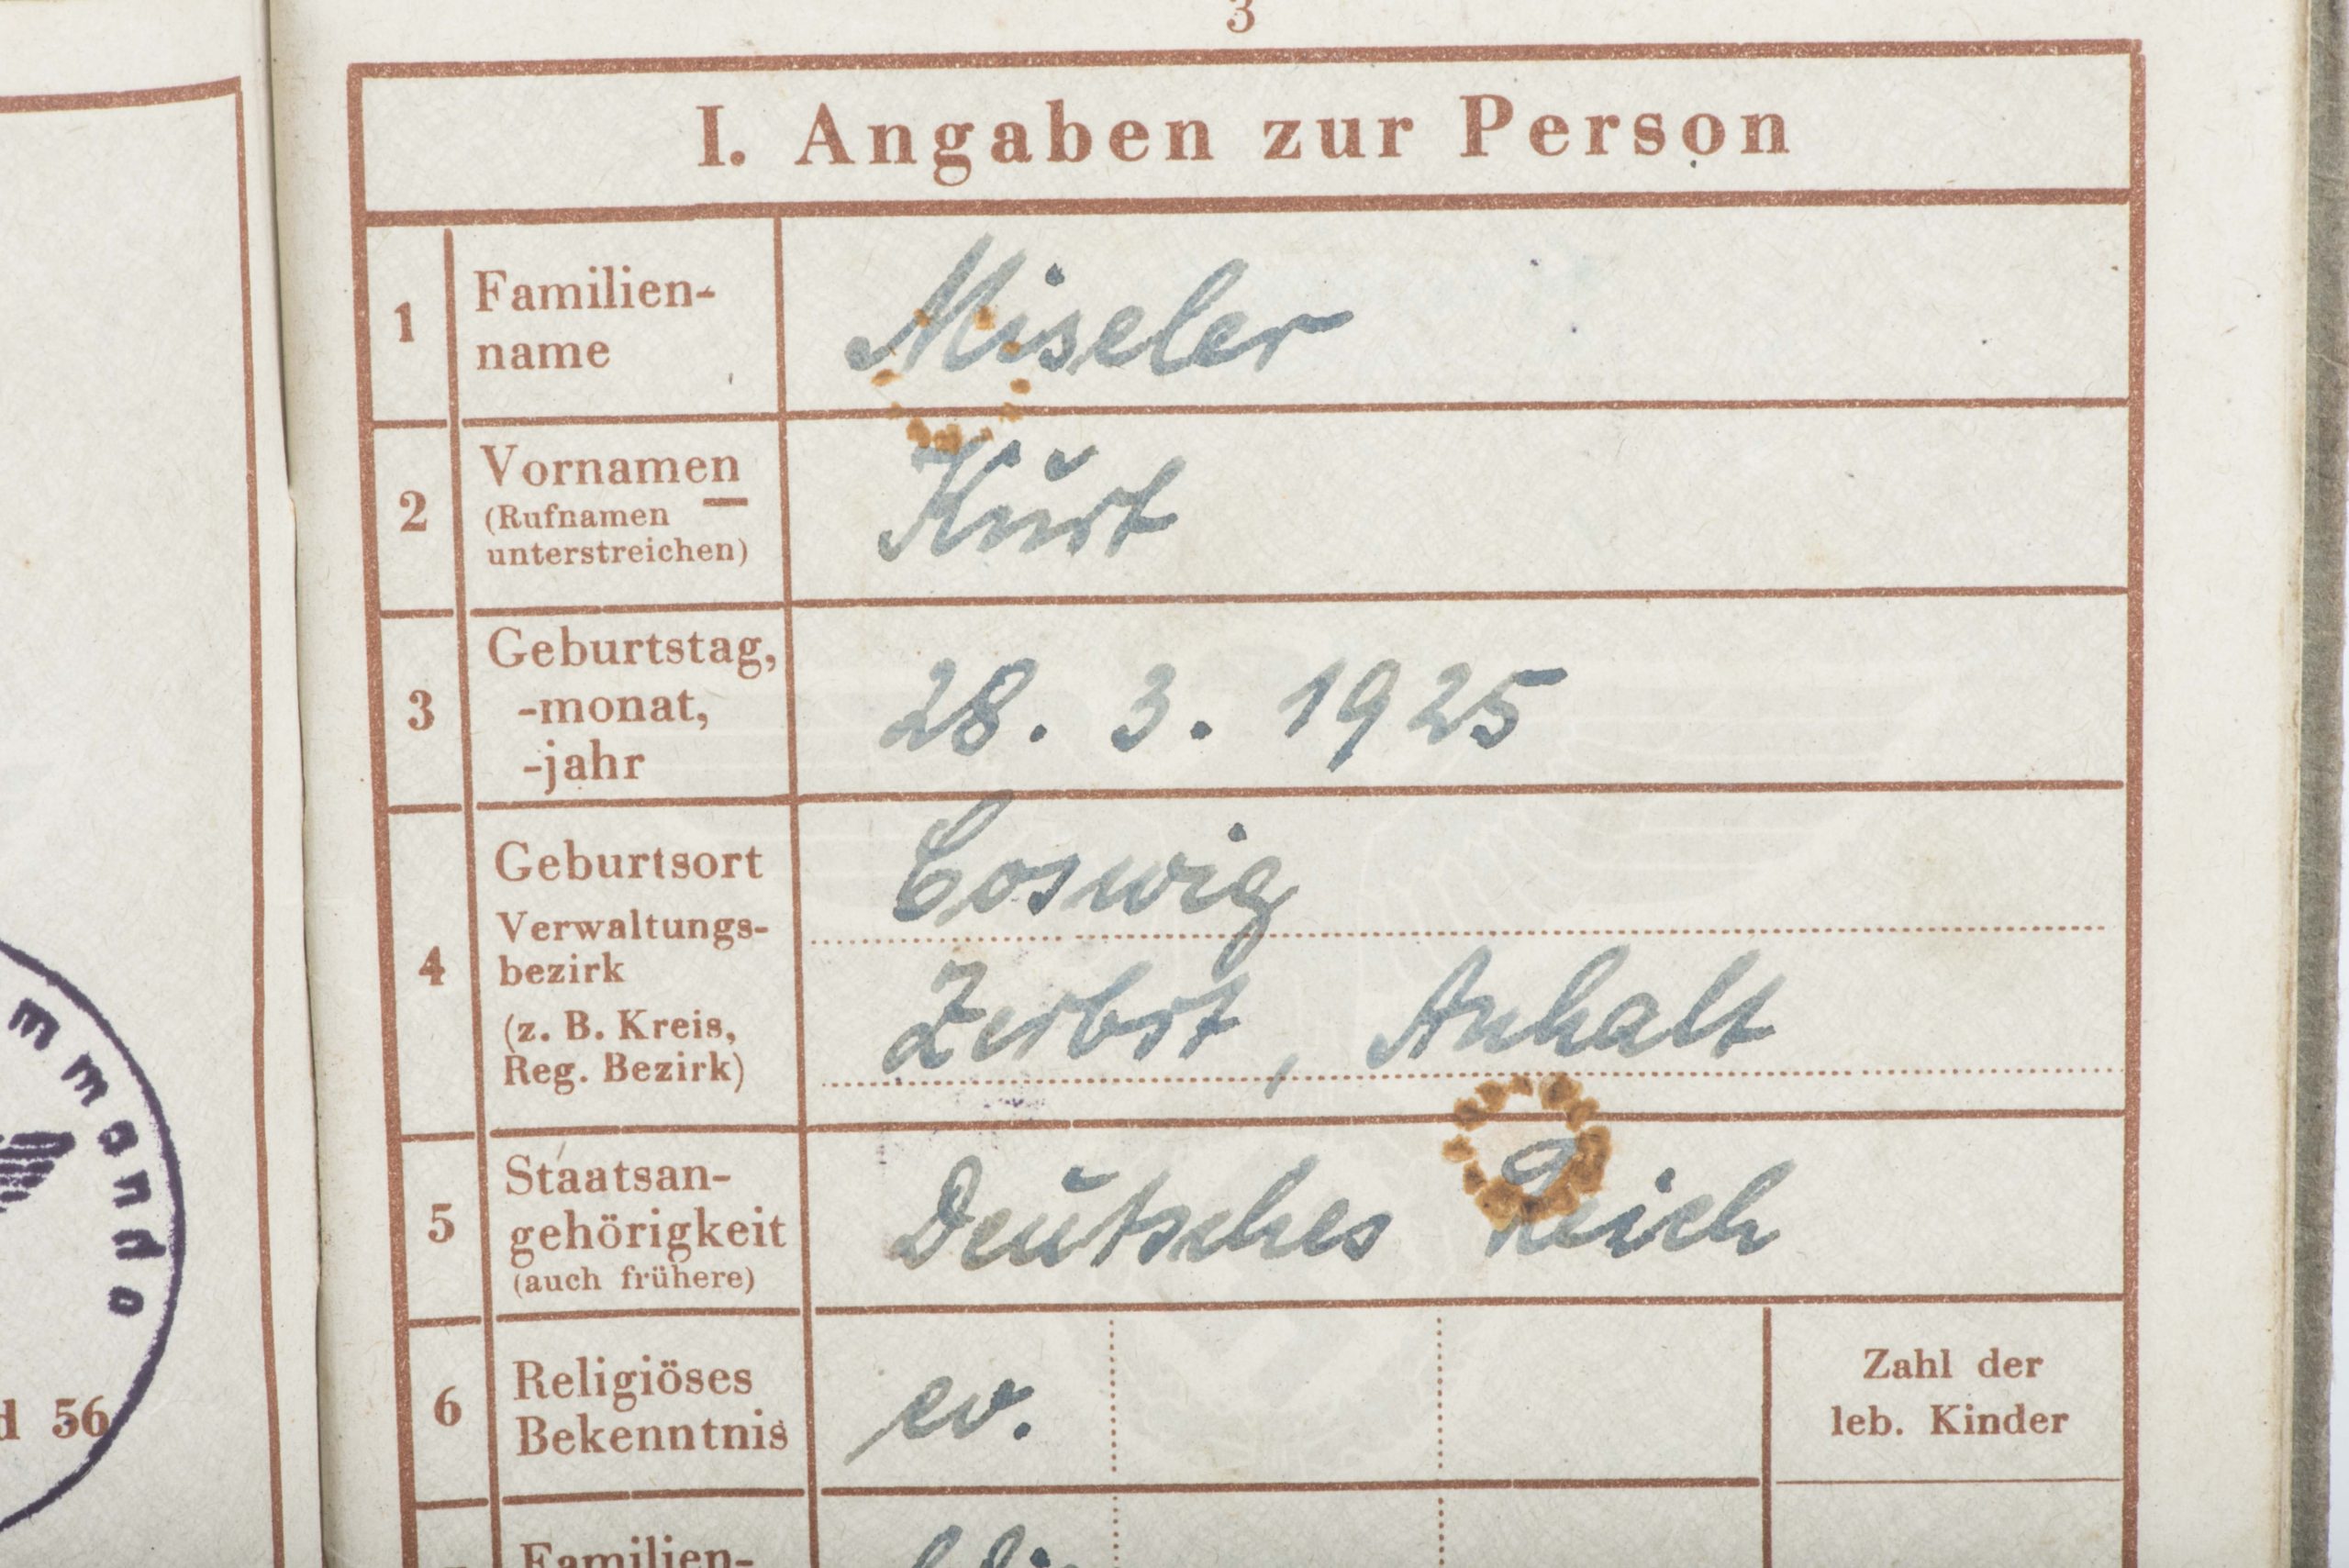 3
I. Angaben zur Person
1 Familien-
name
Miseler
2 Vornamen
(Rufnamen
unterstreichen)
Kurt
3 Geburtstag,
-monat,
-jahr
28. 3. 1925
4 Geburtsort
Verwaltungs-
bezirk
(z. B. Kreis,
Reg. Bezirk)
Coswig
Zerbst, Anhalt
5 Staatsan-
gehörigkeit
(auch frühere)
Deutsches Reich
6 Religiöses
Bekenntnis
ev.
Zahl der
leb. Kinder
Familien-
mmando
d 56